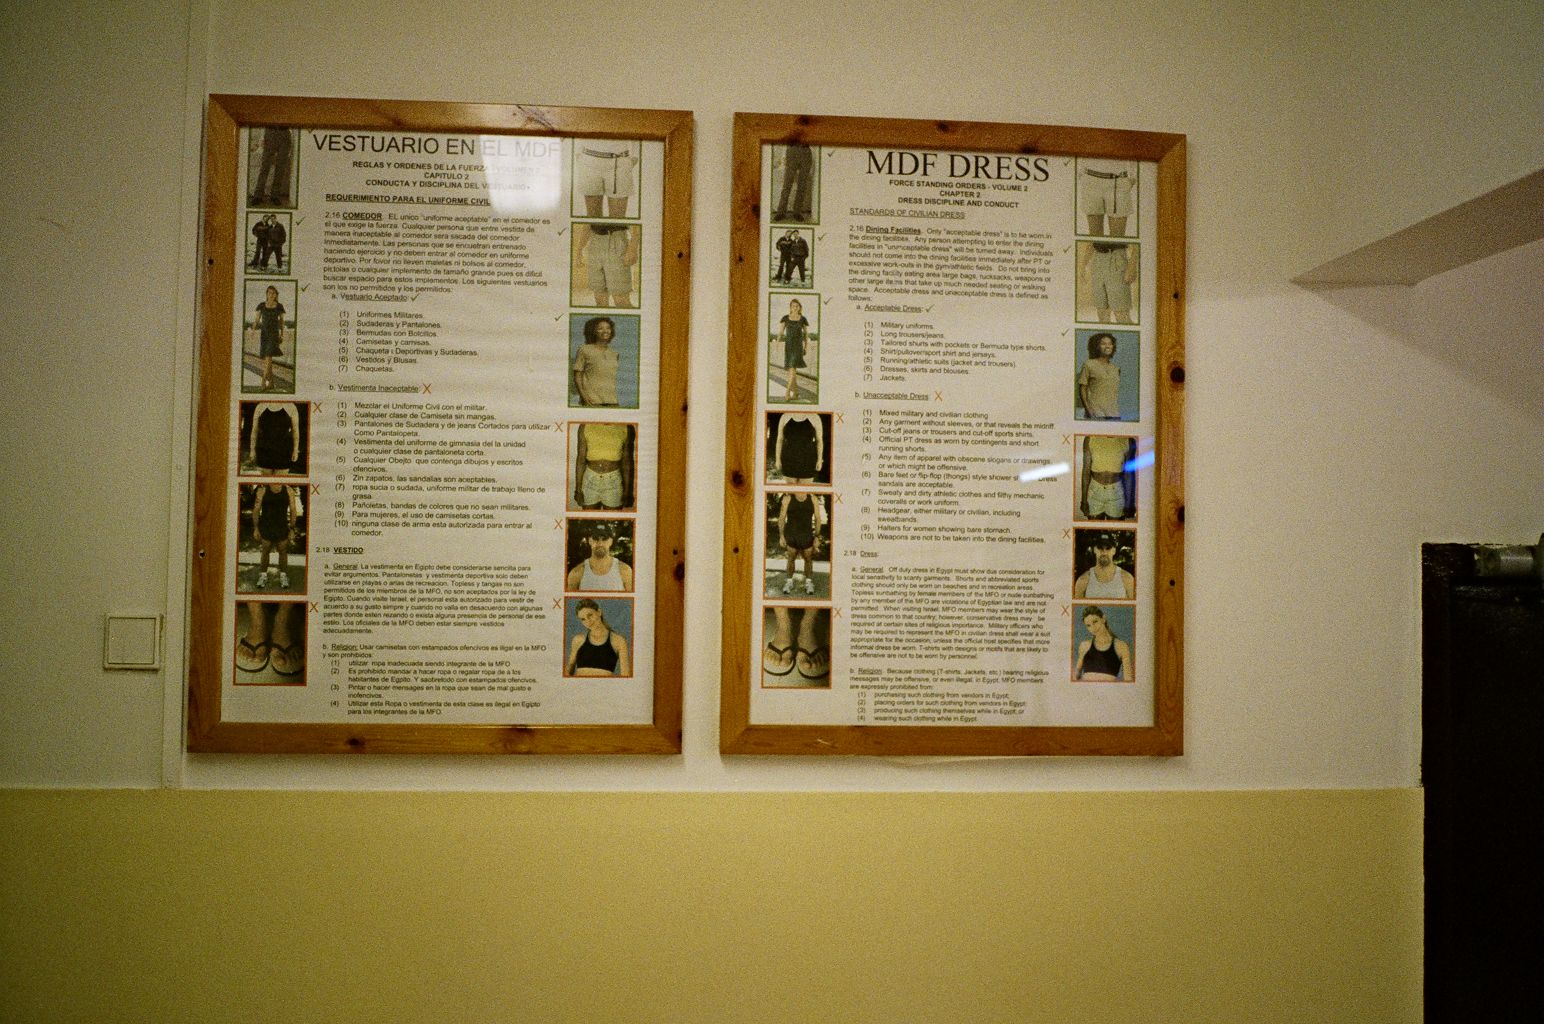 VESTUARIO EN EL MDF
REGLAS Y ORDENES DE LA FUERZA - VOLUMEN 2
CAPITULO 2
CONDUCTA Y DISCIPLINA DEL VESTUARIO
REQUERIMIENTO PARA EL UNIFORME CIVIL
2.16 COMEDOR. EL unico "uniforme aceptable" en el comedor es
el que exige la fuerza. Cualquier persona que entre vestida de
manera inaceptable al comedor sera sacada del comedor
inmediatamente. Las personas que se encuetran entrenado
haciendo ejercicio y no deben entrar al comedor en uniforme
deportivo. Por favor no lleven maletas ni bolsos al comedor,
pistolas o cualquier implemento de tamaño grande pues es dificil
buscar espacio para estos implementos. Los siguientes vestuarios
son los no permitidos y los permitidos:
a. Vestuario Aceptado:
(1) Uniformes Militares.
(2) Sudaderas y Pantalones.
(3) Bermudas con Bolcillos
(4) Camisetas y camisas.
(5) Chaqueta s Deportivas y Sudaderas.
(6) Vestidos y Blusas.
(7) Chaquetas.
b. Vestimenta Inaceptable: X
(1) Mezclar el Uniforme Civil con el militar.
(2) Cualquier clase de Camiseta sin mangas.
(3) Pantalones de Sudadera y de jeans Cortados para utilizar
Como Pantalopeta.
(4) Vestimenta del uniforme de gimnasia del la unidad
o cualquier clase de pantaloneta corta.
(5) Cualquier Obejto que contenga dibujos y escritos
ofencivos.
(6) Zin zapatos, las sandalias son aceptables.
(7) ropa sucia o sudada, uniforme militar de trabajo lleno de
grasa.
(8) Pañoletas, bandas de colores que no sean militares.
(9) Para mujeres, el uso de camisetas cortas.
(10) ninguna clase de arma esta autorizada para entrar al
comedor.
2.18 VESTIDO:
a. General: La vestimenta en Egipto debe considerarse sencilla para
evitar argumentos. Pantalonetas y vestimenta deportiva solo deben
utilizarse en playas o arias de recreacion. Topless y tangas no son
permitidos de los miembros de la MFO, no son aceptados por la ley de
Egipto. Cuando visite Israel, el personal esta autorizado para vestir de
acuerdo a su gusto simpre y cuando no valla en desacuerdo con algunas
partes donde esten rezando o exista alguna presencia de personal de ese
estilo. Los oficiales de la MFO deben estar siempre vestidos
adecuadamente.
b. Religion: Usar camisetas con estampados ofencivos es ilegal en la MFO
y son prohibidos:
(1) utilizar ropa inadecuada siendo integrante de la MFO
(2) Es prohibido mandar a hacer ropa o regalar ropa de a los
habitantes de Egpito. Y saobretodo con estampados ofencivos.
(3) Pintar o hacer mensages en la ropa que sean de mal gusto e
inofencivos.
(4) Utilizar esta Ropa o vestimenta de esta clase es ilegal en Egipto
para los integrantes de la MFO.
MDF DRESS
FORCE STANDING ORDERS - VOLUME 2
CHAPTER 2
DRESS DISCIPLINE AND CONDUCT
STANDARDS OF CIVILIAN DRESS
2.16 Dining Facilities. Only "acceptable dress" is to be worn in
the dining facilities. Any person attempting to enter the dining
facilities in "unacceptable dress" will be turned away. Individuals
should not come into the dining facilities immediately after PT or
excessive work-outs in the gym/athletic fields. Do not bring into
the dining facility eating area large bags, rucksacks, weapons or
other large items that take up much needed seating or walking
space. Acceptable dress and unacceptable dress is defined as
follows:
a. Acceptable Dress:
(1) Military uniforms.
(2) Long trousers/jeans.
(3) Tailored shurts with pockets or Bermuda type shorts.
(4) Shirt/pullover/sport shirt and jerseys.
(5) Running/athletic suits (jacket and trousers).
(6) Dresses, skirts and blouses.
(7) Jackets.
b. Unacceptable Dress: X
(1) Mixed military and civilian clothing
(2) Any garment without sleeves, or that reveals the midriff.
(3) Cut-off jeans or trousers and cut-off sports shirts.
(4) Official PT dress as worn by contingents and short
running shorts.
(5) Any item of apparel with obscene slogans or drawings,
or which might be offensive.
(6) Bare feet or flip-flop (thongs) style shower Dress
sandals are acceptable.
(7) Sweaty and dirty athletic clothes and filthy mechanic
coveralls or work uniform.
(8) Headgear, either military or civilian, including
sweatbands.
(9) Halters for women showing bare stomach.
(10) Weapons are not to be taken into the dining facilities.
2.18 Dress:
a. General. Off duty dress in Egypt must show due consideration for
local sensitivity to scanty garments. Shorts and abbreviated sports
clothing should only be worn on beaches and in recreation areas.
Topless sunbathing by female members of the MFO or nude sunbathing
by any member of the MFO are violations of Egyptian law and are not
permitted. When visiting Israel, MFO members may wear the style of
dress common to that country; however, conservative dress may be
required at certain sites of religious importance. Military officers who
may be required to represent the MFO in civilian dress shall wear a suit
appropriate for the occasion, unless the official host specifies that more
informal dress be worn. T-shirts with designs or motifs that are likely to
be offensive are not to be worn by personnel.
b. Religion. Because clothing (T-shirts, Jackets, etc.) bearing religious
messages may be offensive, or even illegal, in Egypt, MFO members
are expressly prohibited from:
(1) purchasing such clothing from vendors in Egypt;
(2) placing orders for such clothing from vendors in Egypt;
(3) producing such clothing themselves while in Egypt; or
(4) wearing such clothing while in Egypt